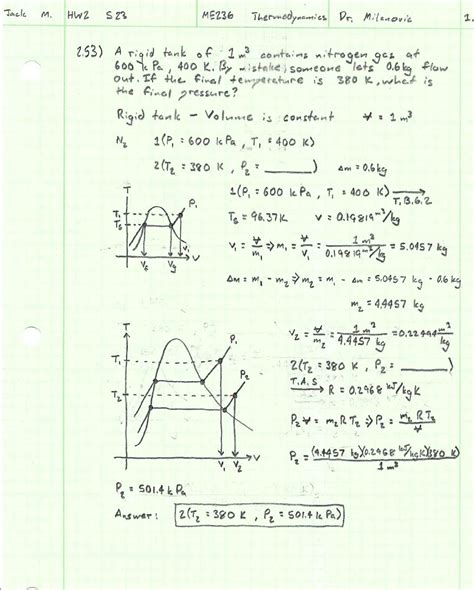 Jack M. HW2 S23 ME236 Thermodynamics Dr. Milanovic 1.
2.53) A rigid tank of 1 m³ contains nitrogen gas at
600 kPa, 400 K. By mistake, someone lets 0.6 kg flow
out. If the final temperature is 380 K, what is
the final pressure?
Rigid tank - Volume is constant V = 1 m³
N₂ 1(P₁ = 600 kPa, T₁ = 400 K)
2(T₂ = 380 K, P₂ = ____) Δm = 0.6 kg
1(P₁ = 600 kPa, T₁ = 400 K) → T.B.6.2
T
T₁
Ts
P₁
V₁
Vf
Vg
V
Ts = 96.37K v = 0.19819 m³/kg
v₁ = V/m₁ ⇒ m₁ = V/v₁ = 1 m³/0.19819 m³/kg = 5.0457 kg
Δm = m₁ - m₂ ⇒ m₂ = m₁ - Δm = 5.0457 kg - 0.6 kg
m₂ = 4.4457 kg
v₂ = V/m₂ = 1 m³/4.4457 kg = 0.22494 m³/kg
T
T₁
T₂
P₁
P₂
V₁ V₂
V
2(T₂ = 380 K, P₂ = ____)
T.A.5 → R = 0.2968 kJ/kgK
P₂V = m₂RT₂ ⇒ P₂ = m₂RT₂/V
P₂ = (4.4457 kg)(0.2968 kJ/kgK)(380 K)/1 m³
P₂ = 501.4 kPa
Answer: 2(T₂ = 380 K, P₂ = 501.4 kPa)